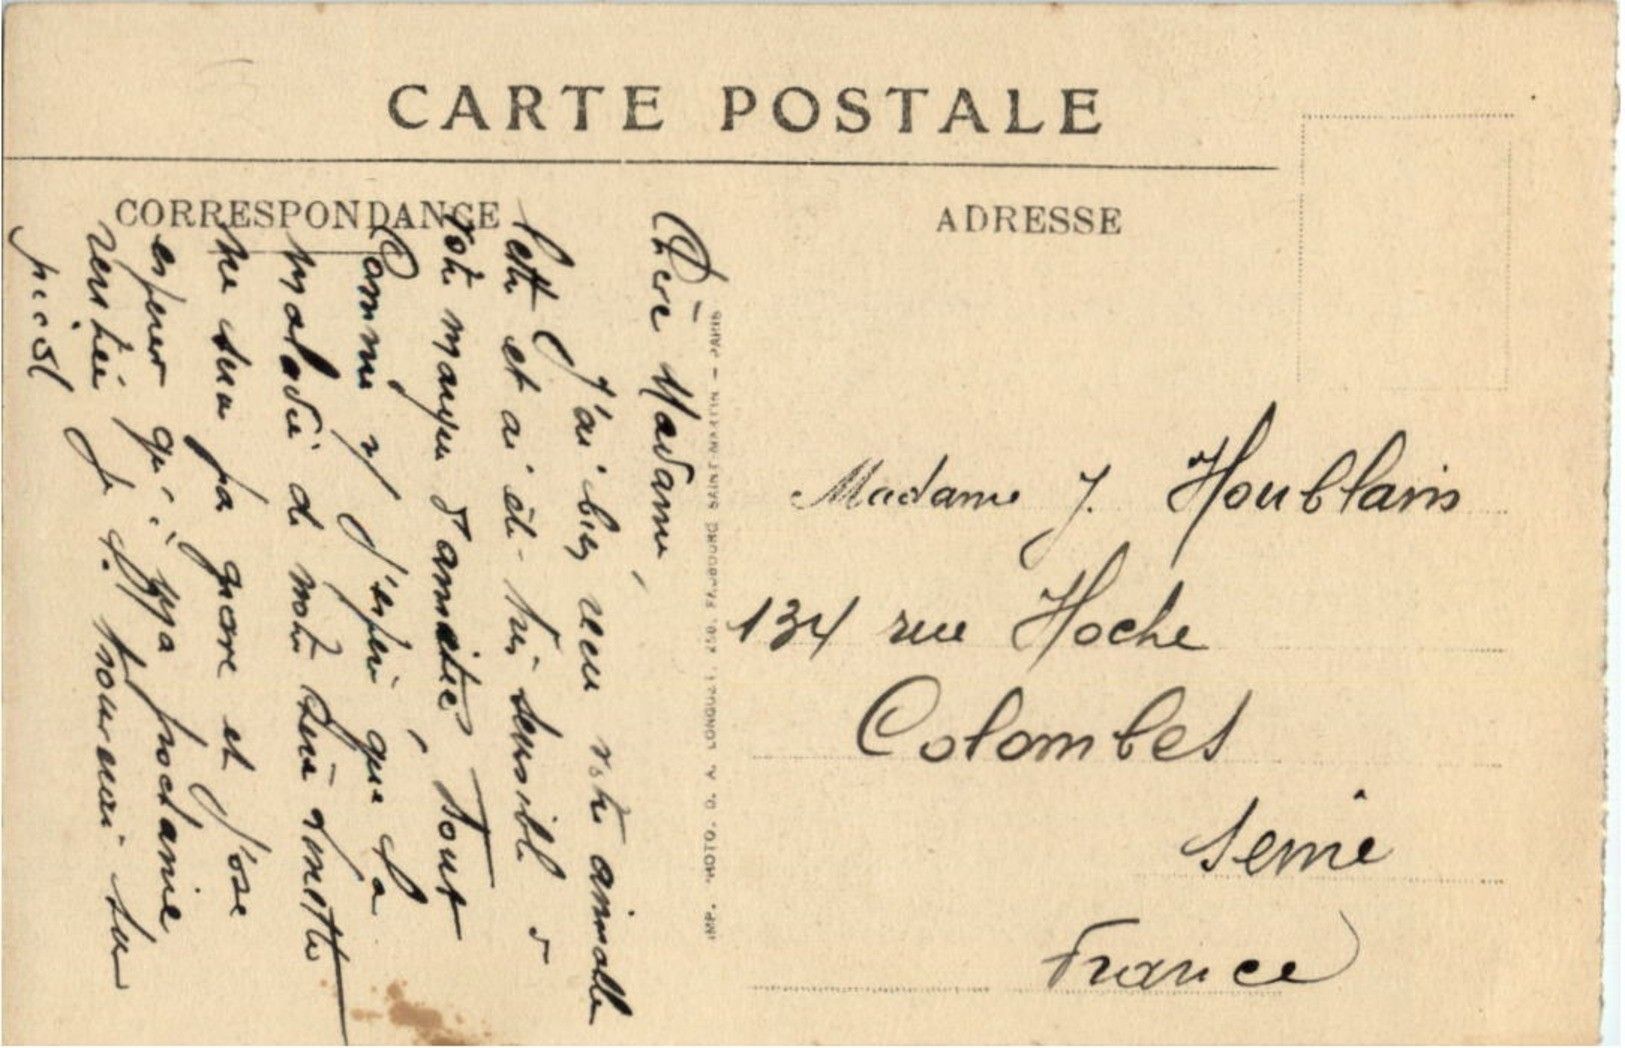 CARTE POSTALE
CORRESPONDANCE
ADRESSE
Chère Madame,
J'ai bien reçu votre aimable
lettre et ai été très sensible à
votre marque d'amitié. Tout
comme v/ J'espère que la
maladie de notre chère
ne sera pas grave et J'ose
espérer qu'
rentrée Je v. trouverai sur
pied
IMP. PHOTO. D. A. LONGUET, 250, FAUBOURG SAINT-MARTIN — PARIS
Madame J. Houblain
134 rue Hoche
Colombes
Seine
France